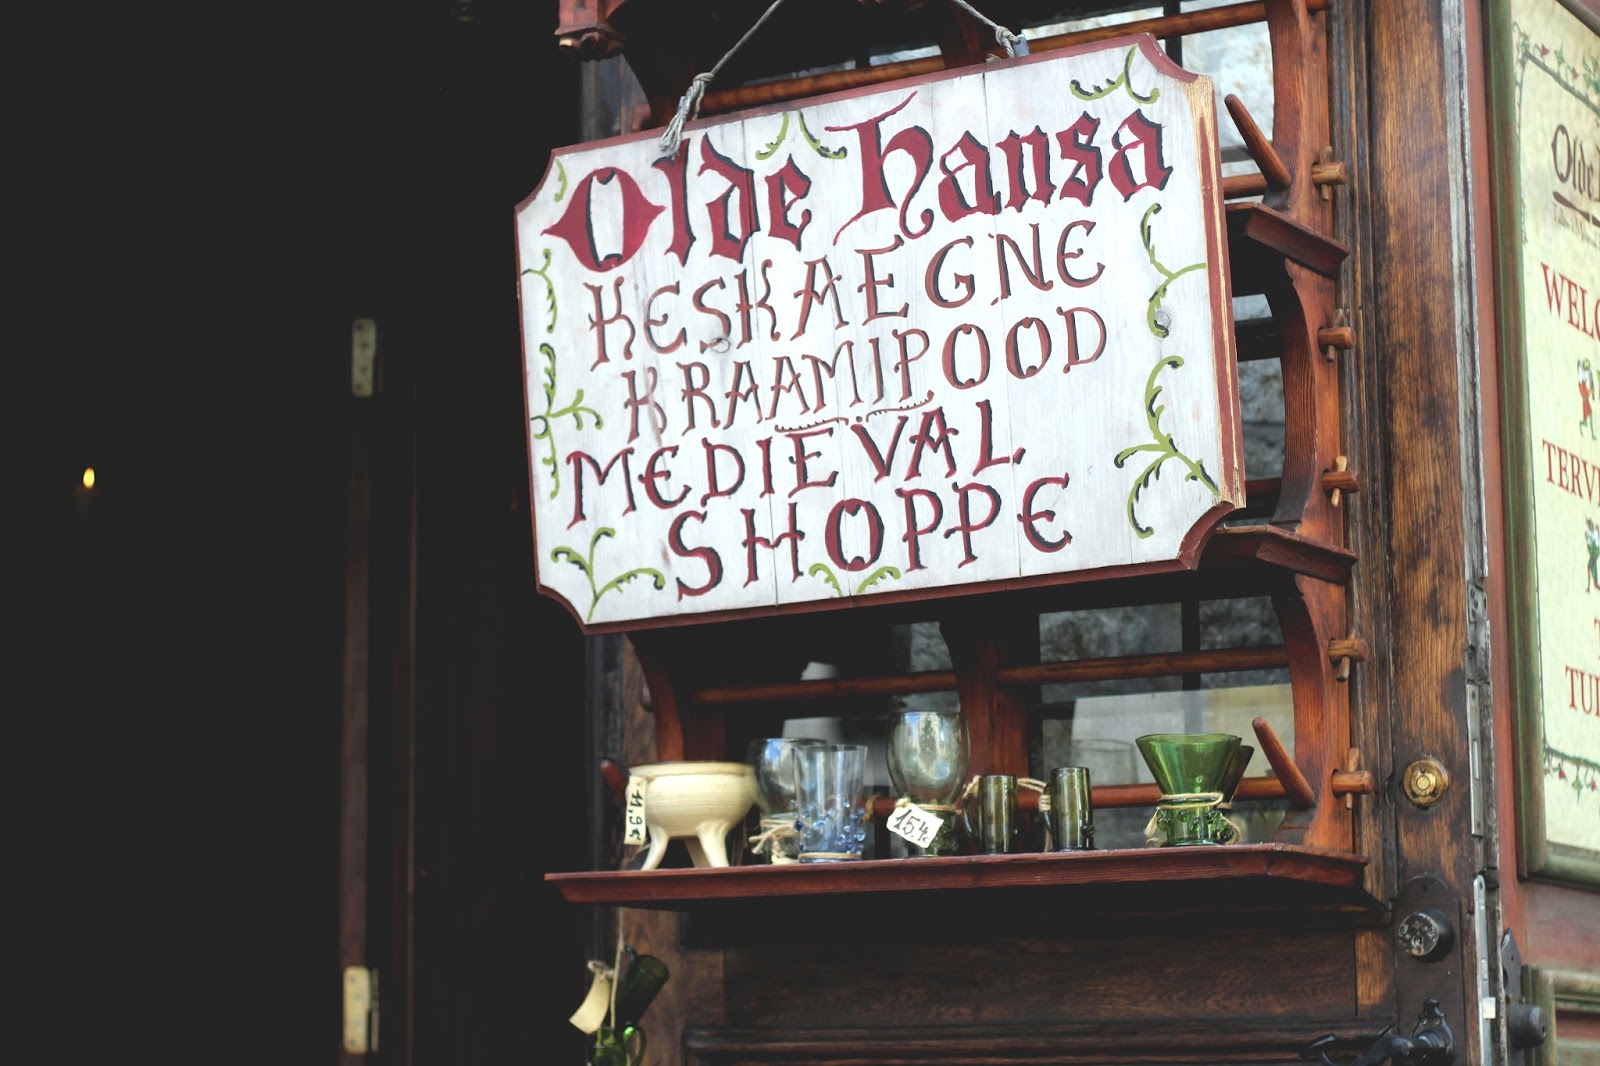 Olde Hansa
KESKAEGNE
KRAAMIPOOD
MEDIEVAL
SHOPPE
11,9€
15.4
Olde